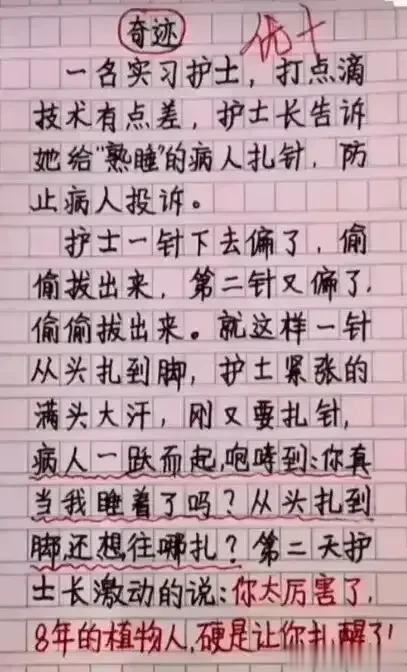 奇迹 优+
一名实习护士，打点滴
技术有点差，护士长告诉
她给"熟睡"的病人扎针，防
止病人投诉。
护士一针下去偏了，偷
偷拔出来，第二针又偏了，
偷偷拔出来。就这样一针
从头扎到脚，护士紧张的
满头大汗，刚又要扎针，
病人一跃而起，咆哮到：你真
当我睡着了吗？从头扎到
脚，还想往哪扎？第二天护
士长激动的说：你太厉害了，
8年的植物人，硬是让你扎醒了！